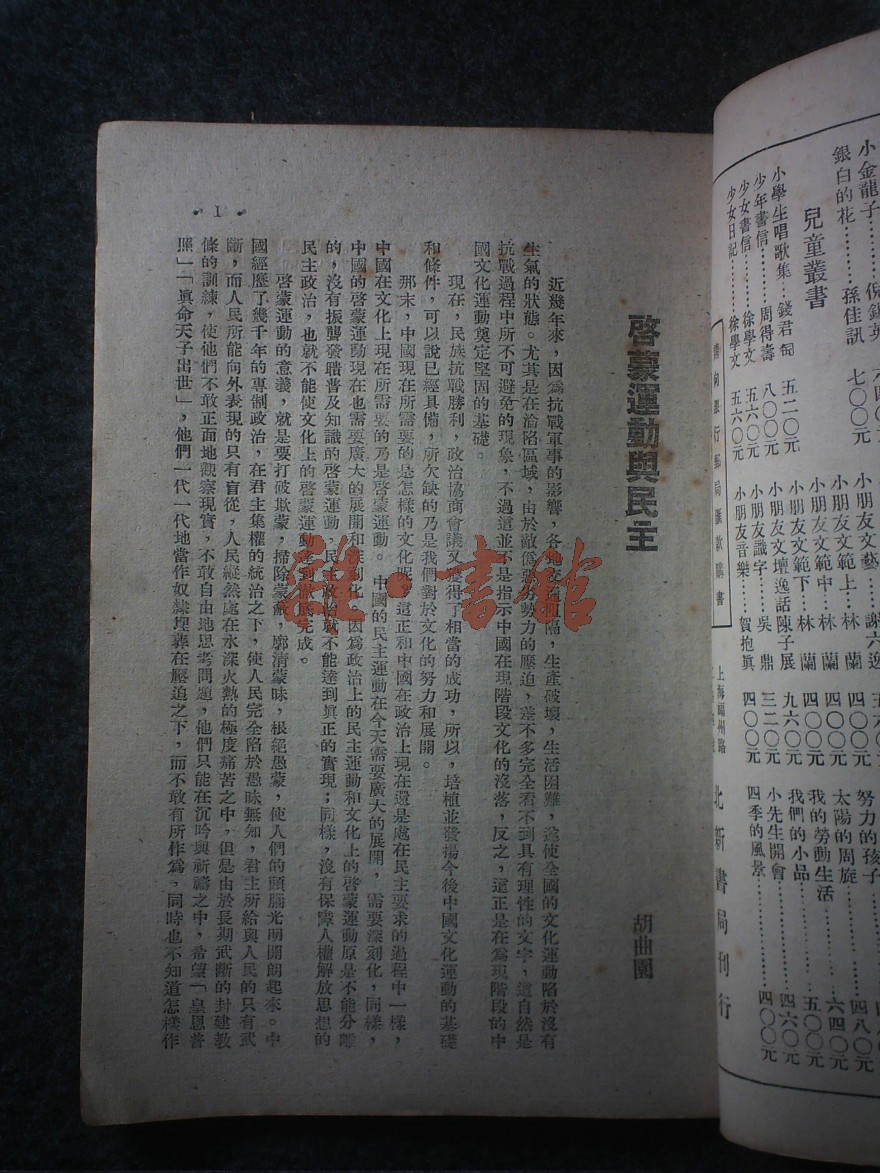 小金龍子………倪錫英
銀白的花………孫佳訊 七〇〇元
兒童叢書
小學生唱歌集…錢君匋 五二〇元
少年書信………周得壽 八〇〇元
少女書信………徐學文 五六〇元
少女日記………徐學文 五六〇元
小朋友文藝…謝六逸
小朋友文範上…林蘭 四〇〇元
小朋友文範中…林蘭 四〇〇元
小朋友文範下…林蘭 四〇〇元
小朋友文壇逸話陳子展 九六〇元
小朋友識字…吳鼎 三二〇元
小朋友音樂…賀抱眞 四〇〇元
努力的孩子………四八〇元
太陽的周旋………六四〇元
我的勞動生活………五〇〇元
我們的小品………四六〇元
小先生開會………四六〇元
四季的風景………四〇〇元
請向銀行郵局匯款購書
上海福州路
北新書局刊行
啓蒙運動與民主
胡曲園
近幾年來，因爲抗戰軍事的影響，各地交通阻隔，生產破壞，生活困難，遂使全國的文化運動陷於沒有
生氣的狀態。尤其是在淪陷區域，由於敵僞惡劣勢力的壓迫，差不多完全看不到具有理性的文字，這自然是
抗戰過程中所不可避免的現象，不過這並不是指示中國在現階段文化的沒落，反之，這正是在爲現階段的中
國文化運動奠定堅固的基礎。
現在，民族抗戰勝利，政治協商會議又獲得了相當的成功，所以，培植並發揚今後中國文化運動的基礎
和條件，可以說已經具備，所欠缺的乃是我們對於文化的努力和展開。
那末，中國現在所需要的是怎樣的文化呢，這正和中國在政治上現在還是處在民主要求的過程中一樣，
中國在文化上現在所需要的乃是啓蒙運動。中國的民主運動在今天需要廣大的展開，需要深刻化，同樣，
中國的啓蒙運動現在也需要廣大的展開和深刻化，因爲政治上的民主運動和文化上的啓蒙運動原是不能分離
的，沒有振聾發聵普及知識的啓蒙運動，民主政治就不能達到眞正的實現；同樣，沒有保障人權解放思想的
民主政治，也就不能使文化上的啓蒙運動達到徹底完成。
啓蒙運動的意義，就是要打破欺蒙，掃除蒙蔽，廓清蒙昧，根絕愚蒙，使人們的頭腦光明開朗起來。中
國經歷了幾千年的專制政治，在君主集權的統治之下，使人民完全陷於愚昧無知，君主所給與人民的只有武
斷，而人民所能向外表現的只有盲從，人民縱然處在水深火熱的極度痛苦之中，但是由於長期武斷的封建教
條的訓練，使他們不敢正面地觀察現實，不敢自由地思考問題，他們只能在沉吟與祈禱之中，希望「皇恩普
照」「眞命天子出世」，他們一代一代地當作奴隸埋葬在壓迫之下，而不敢有所作爲，同時也不知道怎樣作
· I ·
雜·書館